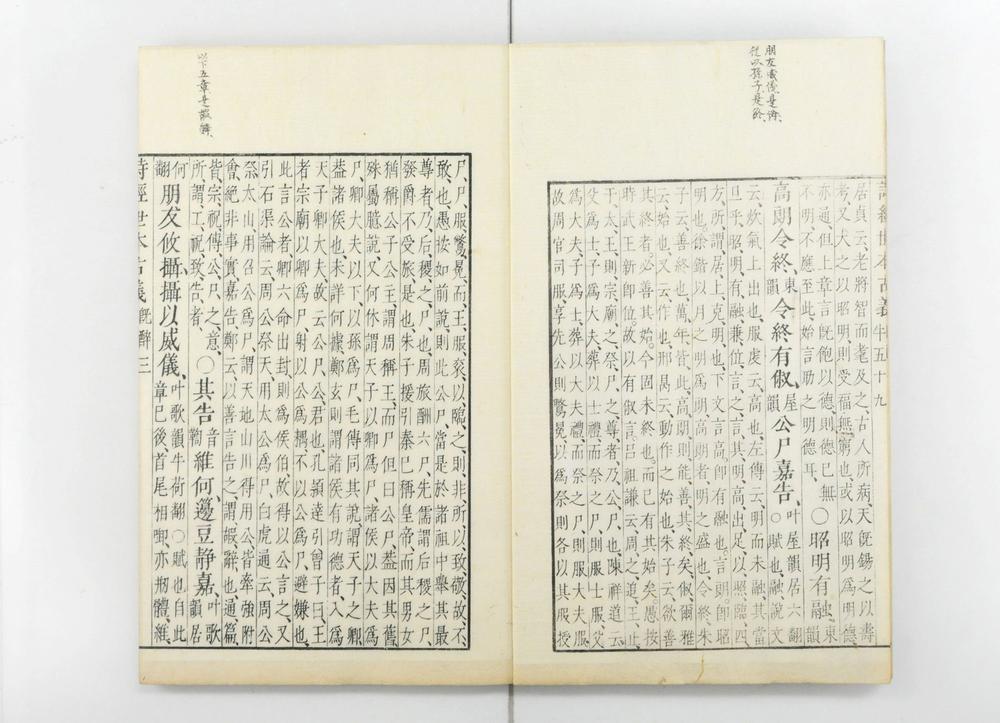 朋友威儀是
從以孫子是
詩經世本古義 牛五十九
居貞云老將智而耄及之古人所病天旣錫之以壽
考又大之以昭明則受福無窮也或以昭明爲明德
亦通但上章言旣飽以德則德已無
不明不應至此始言助之明德耳○昭明有融東韻
高朗令終東韻令終有俶屋韻公尸嘉告叶屋韻居六翻○賦也融說文
云炊氣上出也服虔云高也左傳云明而未融其當
旦乎昭明有融兼位言之言其明高出足以照臨四
方所謂居上克明也下文言高卽有融也言朗卽昭
明也徐鍇以月之明爲朗高朗者明之盛也令終朱
子云善終也萬年皆此高朗則能善其終矣俶爾雅
云始也又云作也邢昺云動作之始也朱子云欲善
其終者必善其始今固未終也而已有其始矣愚按
時武王新卽位故以有俶言呂祖謙云周之追王止
于太王則宗廟之祭尸之尊者乃公尸也陳祥道云
父爲士子爲大夫葬以士禮而祭之尸則服士服父
爲大夫子爲士葬以大夫禮而祭之尸則服大夫服
故周官司服享先公則鷩冕以爲祭則各以其服授
以下五章是嘏辭
尸尸服鷩冕而王服衮以臨之則非所以致敬故不
敢也愚按如前說則此公尸當是於諸祖中舉其最
尊者乃后稷之尸也周旅酬六尸先儒謂后稷之尸
發爵不受旅是也朱子援引秦已稱皇帝而其男女
猶稱公子公主謂周稱王而尸但曰公尸葢因其舊
殊屬臆說又何休謂天子以卿爲尸諸侯以大夫爲
尸卿大夫以下以孫爲尸毛傳同其說謂天子之卿
葢諸侯也未詳何據鄭玄則謂諸侯有功德者入爲
天子卿大夫故云公尸公君也孔頴達引曾子曰王
者宗廟以卿爲尸射以公爲耦不以公爲尸避嫌也
此言公者卿六命出封則爲侯伯故得以公言之又
引石渠論云周公祭天用太公爲尸白虎通云周公
祭太山用召公爲尸謂天地山川得用公皆牽強附
會絕非事實嘉告鄭云以善言告之謂嘏辭也通篇
皆宗祝傳公尸之意
所謂工祝致告者○其告音韵維何籩豆静嘉叶歌韻居
何翻朋友攸攝攝以威儀叶歌韻牛荷翻○賦也自此
章已後首尾相啣亦刱體維
詩經世本古義 旣醉 三